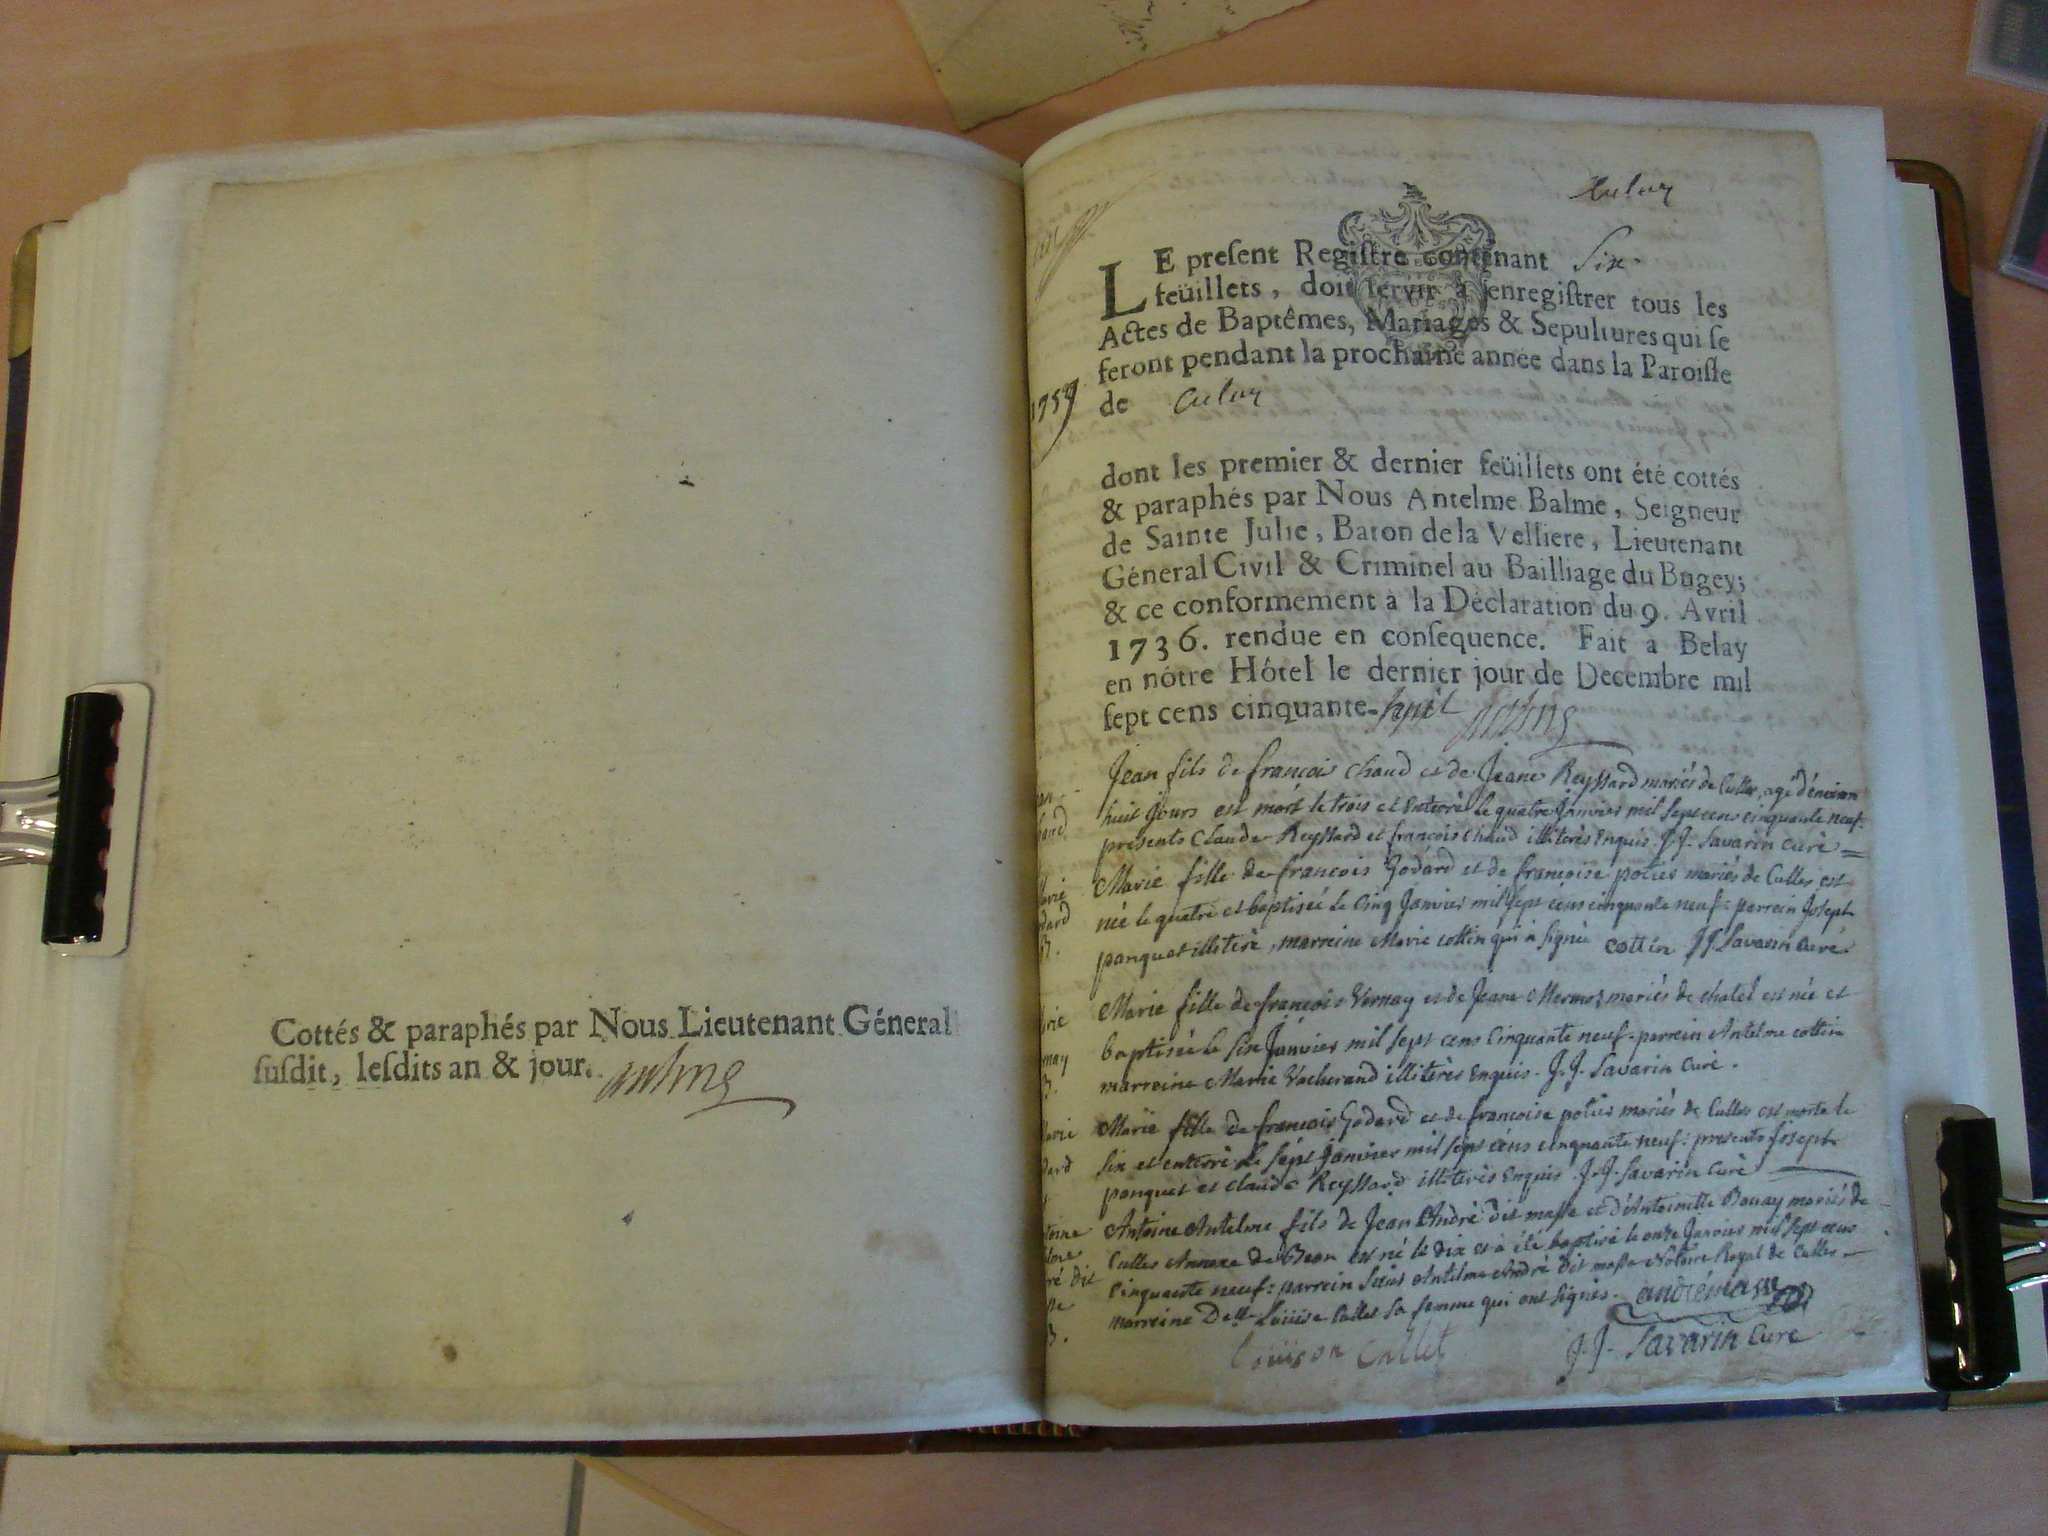 Cottés & paraphés par Nous Lieutenant Géneral
ſuſdit, leſdits an & jour.
Culoz
LE preſent Regiſtre contenant Six
feüillets, doit ſervir à enregiſtrer tous les
Actes de Baptêmes, Mariages & Sepultures qui ſe
feront pendant la prochaine année dans la Paroiſſe
1759
de Culoz
dont les premier & dernier feüillets ont été cottés
& paraphés par Nous Antelme Balme, Seigneur
de Sainte Julie, Baron de la Velliere, Lieutenant
Géneral Civil & Criminel au Bailliage du Bugey;
& ce conformement à la Déclaration du 9. Avril
1736. rendue en conſequence. Fait a Belay
en nôtre Hôtel le dernier jour de Decembre mil
ſept cens cinquante-huit
Jean fils de francois Chaud et de Jeane Reyssard mariés de Culles, agé d'environ
huit Jours est mort le trois et Enterré le quatre Janvier mil sept cens cinquante neuf.
présents Claude Reyssard et francois Chaud illiterés Enquis. J.J. Savarin Curé
Marie fille de francois Godard et de francoise potier mariés de Culles est
née le quatre et baptisée le Cinq Janvier mil sept cens cinquante neuf: parrein Joseph
panquet illiteré, marreine Marie cottin qui a signée cottin JJ Savarin Curé
Marie fille de francois Vernay et de Jeane Mermoz mariés de chatel est née et
baptisée le Six Janvier mil sept cens Cinquante neuf. parrein Antelme cottin
marreine Marie Vacherand illiterés Enquis. J.J. Savarin Curé.
Marie fille de francois Godard et de francoise potier mariés de Culles est morte le
Six et enterré le sept Janvier mil sept cens cinquante neuf: presents Joseph
panquet et claude Reyssard illiterés Enquis. J.J. Savarin Curé
Antoine Antelme fils de Jean André dit masse et d'Antoinette Bonay mariés de
Culles Annexe de Beon est né le dix et a été baptisé le onze Janvier mil sept cens
Cinquante neuf: parrein Antelme André dit masse Notaire Royal de Culles
marreine Delle Loüise Callet sa femme qui ont signés. andrémasse
loüison Callet J.J. Savarin Curé